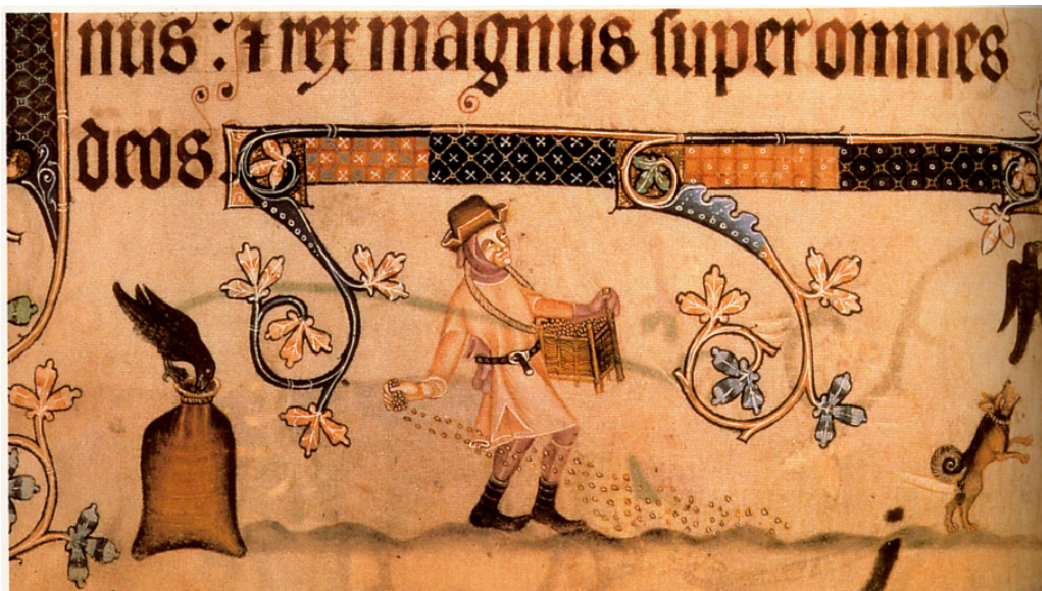 nus : ⁊ rex magnus super omnes
deos .